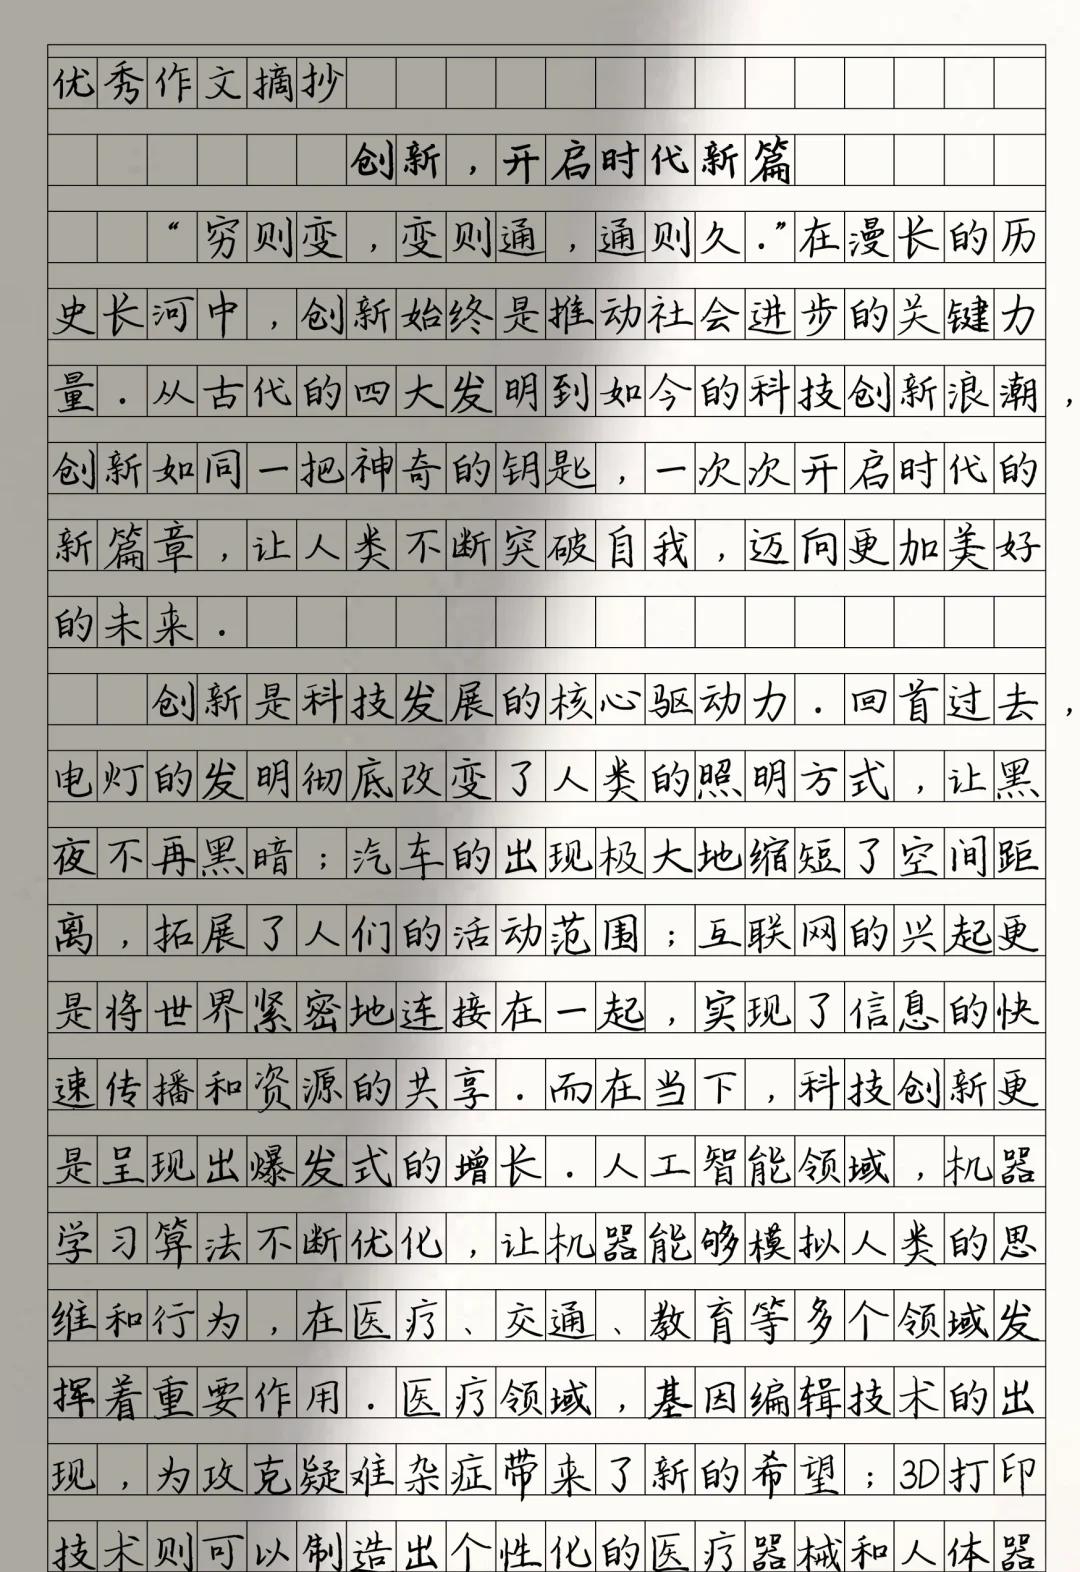 优秀作文摘抄
创新，开启时代新篇
“穷则变，变则通，通则久．”在漫长的历
史长河中，创新始终是推动社会进步的关键力
量．从古代的四大发明到如今的科技创新浪潮，
创新如同一把神奇的钥匙，一次次开启时代的
新篇章，让人类不断突破自我，迈向更加美好
的未来．
创新是科技发展的核心驱动力．回首过去，
电灯的发明彻底改变了人类的照明方式，让黑
夜不再黑暗；汽车的出现极大地缩短了空间距
离，拓展了人们的活动范围；互联网的兴起更
是将世界紧密地连接在一起，实现了信息的快
速传播和资源的共享．而在当下，科技创新更
是呈现出爆发式的增长．人工智能领域，机器
学习算法不断优化，让机器能够模拟人类的思
维和行为，在医疗、交通、教育等多个领域发
挥着重要作用．医疗领域，基因编辑技术的出
现，为攻克疑难杂症带来了新的希望；3D打印
技术则可以制造出个性化的医疗器械和人体器